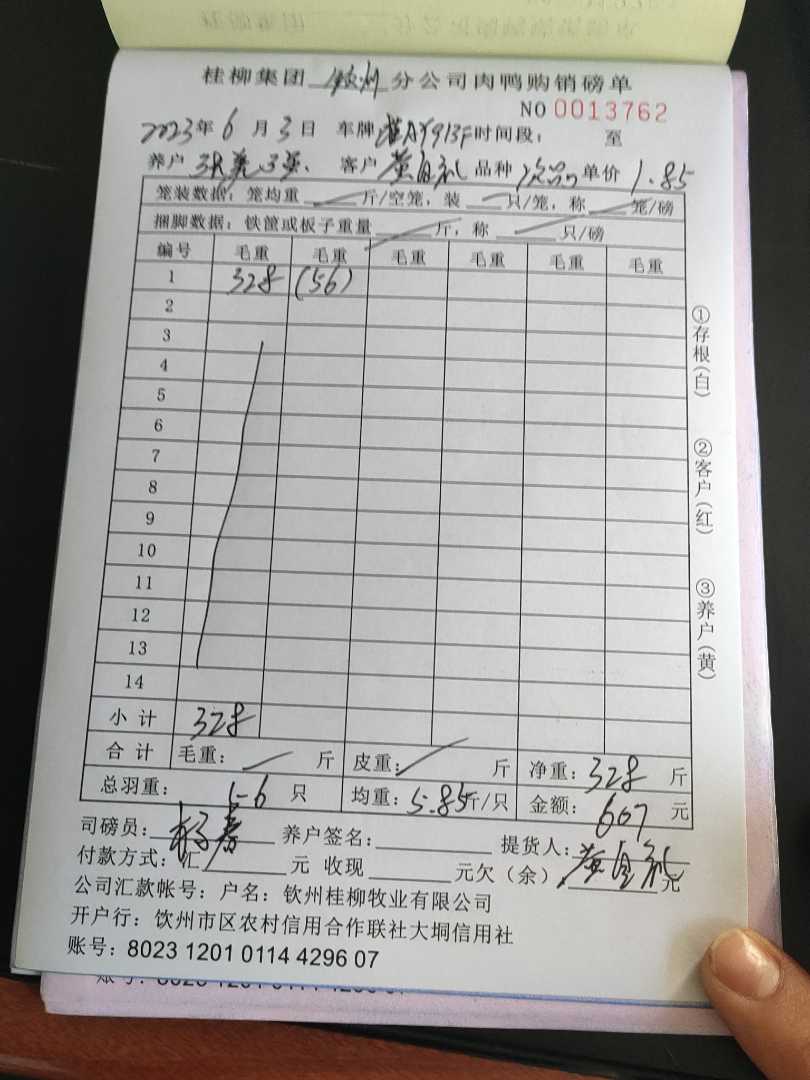 桂柳集团 钦州 分公司肉鸭购销磅单
NO 0013762
2023年 6 月 3 日 车牌 时间段： 至
养户 客户 黄自礼 品种 次品 单价 1.85
笼装数据：笼均重 斤/空笼，装 只/笼，称 笼/磅
捆脚数据：铁筐或板子重量 斤，称 只/磅
编号 毛重 毛重 毛重 毛重 毛重 毛重
1 328 (56)
2
3
4
5
6
7
8
9
10
11
12
13
14
小 计 328
合 计 毛重： 斤 皮重： 斤 净重：328 斤
总羽重： 56 只 均重：5.85斤/只 金额：607 元
司磅员： 养户签名： 提货人：黄自礼
付款方式：汇 元 收现 元欠（余） 元
公司汇款帐号：户名：钦州桂柳牧业有限公司
开户行：钦州市区农村信用合作联社大垌信用社
账号：8023 1201 0114 4296 07
①存根（白）
②客户（红）
③养户（黄）